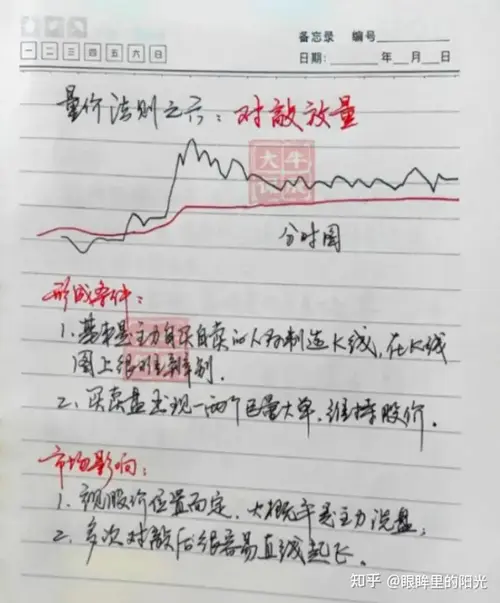 备忘录 编号
一 二 三 四 五 六 日
日期: 年 月 日
量价法则之六：对敲放量
大牛
分时图
形成条件：
1. 基本是主力自买自卖的人为制造K线，在K线
图上很难辨别．
2、买卖盘出现一两个巨量大单，维持股价．
市场影响：
1、视股价位置而定，大概率是主力洗盘；
2、多次对敲后很容易直线起飞．
知乎 @眼眸里的阳光